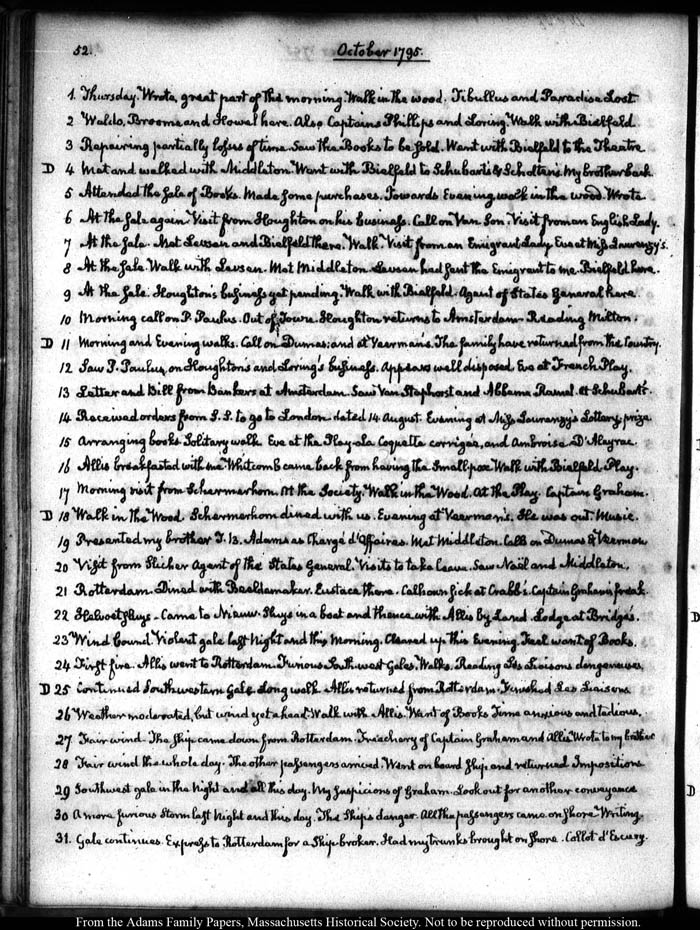 52.
October 1795.
1. Thursday. Wrote, great part of the morning. Walk in the wood. Tibullus and Paradise Lost
2 Waldo, Broome and Howel here. Also Captains Phillips and Loring. Walk with Bielfeld.
3 Repairing partially losses of time. Saw the Books to be sold. Went with Bielfeld to the Theatre
D 4 Met and walked with Middleton. Went with Bielfeld to Schubart's & Scholten's. My brother back.
5 Attended the sale of Books. Made some purchases. Towards Evening walk in the wood. Wrote
6 At the sale again. Visit from Houghton on his business. Call on Van Son. Visit from an English Lady.
7 At the sale. Met Levsen and Bielfeld there. Walk. Visit from an Emigrant Lady. Eve at Miss
8 At the sale. Walk with Levsen. Met Middleton. Levsen had sent the Emigrant to me. Bielfeld here.
9 At the sale. Houghton's business yet pending. Walk with Bielfeld. Agent of States General here.
10 Morning call on P. Paulus. Out of Town. Houghton returns to Amsterdam. Reading Milton.
D 11 Morning and Evening walks. Call on Dumas: and at Veerman's. The family have returned from the Country.
12 Saw P. Paulus, on Houghton's and Loring's business. Appears well disposed. Eve at French Play.
13 Letter and Bill from Bankers at Amsterdam. Saw Van Staphorst and Abbema at Schubart's.
14 Received orders from S.S. to go to London. dated 14 August. Evening at Miss Lottery prize
15 Arranging books. Solitary walk. Eve at the Play. La Coquette corrigée, and Ambroise. D'Aleyrac.
16 Allis breakfasted with me. Whitcomb came back from having the Small pox. Walk with Bielfeld. Play.
17 Morning visit from Schermerhorn. At the Society. Walk in the Wood. At the Play. Captain Graham.
D 18 Walk in the Wood. Schermerhorn dined with us. Evening at Veerman's. He was out. Music.
19 Presented my brother T. B. Adams as Chargé d'Affaires. Met Middleton. Call on Dumas & Veerman
20 Visit from Slicher Agent of the States General. Visits to take leave. Saw Noël and Middleton.
21 Rotterdam. Dined with Beeldemaker. Eustace there. Calhoun sick at Crabb's. Captain Graham's freak.
22 Helvoetsluys. Came to Nieuw Sluys in a boat and thence with Allis by Land. Lodge at Bridge's.
23 Wind bound. Violent gale last Night and this Morning. Cleared up this Evening. Feel want of Books.
24 First fire. Allis went to Rotterdam. Furious South-west Gales. Walks. Reading Les Liaisons dangereuses,
D 25 Continued Southwestern Gale. Long walk. Allis returned from Rotterdam. Finished Les Liaisons
26 Weather moderated, but wind yet ahead. Walk with Allis. Want of Books. Time anxious and tedious.
27 Fair wind. The Ship came down from Rotterdam. Treachery of Captain Graham and Allis. Wrote to my brother
28 Fair wind the whole day. The other passengers arrived. Went on board Ship and returned. Impositions
29 Southwest gale in the Night and all this day. My suspicions of Graham. Look out for another conveyance
30 A more furious Storm last Night and this day. The Ship's danger. All the passengers came on shore. Writing.
31. Gale continues. Express to Rotterdam for a Ship-broker. Had my trunks brought on shore. Callot d'Escury.
From the Adams Family Papers, Massachusetts Historical Society. Not to be reproduced without permission.